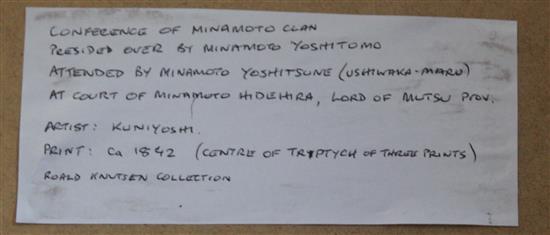 CONFERENCE OF MINAMOTO CLAN
PRESIDED OVER BY MINAMOTO YOSHITOMO
ATTENDED BY MINAMOTO YOSHITSUNE (USHIWAKA-MARU)
AT COURT OF MINAMOTO HIDEHIRA, LORD OF MUTSU PROV.
ARTIST: KUNIYOSHI.
PRINT: Ca 1842 (CENTRE OF TRYPTYCH OF THREE PRINTS)
ROALD KNUTSEN COLLECTION